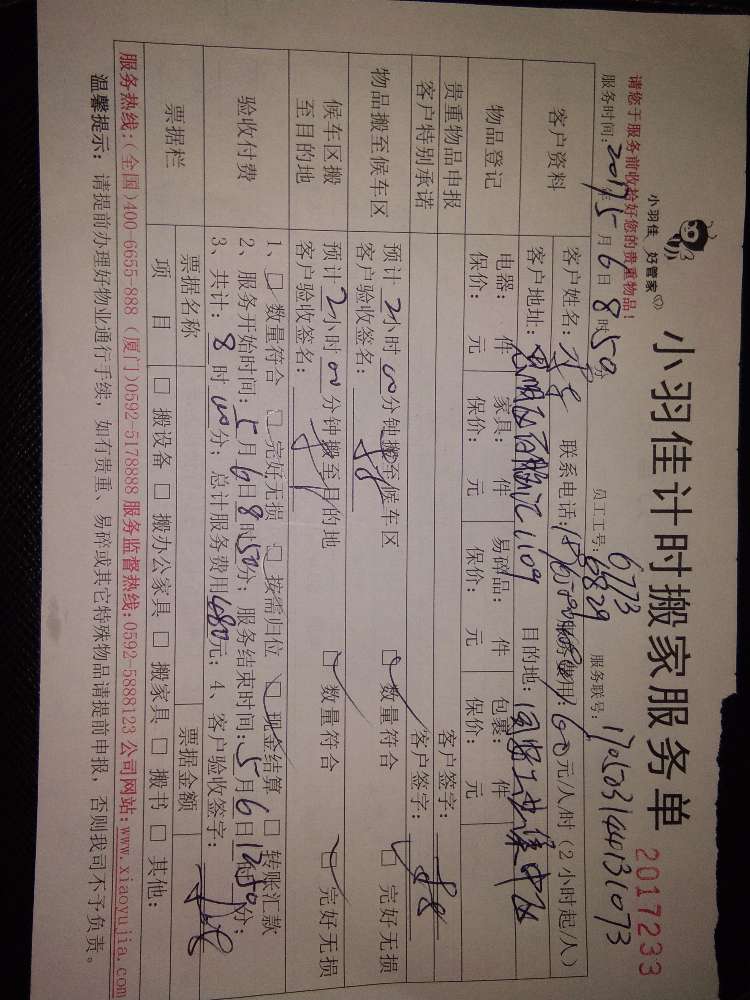 小羽佳 好管家
小羽佳计时搬家服务单
2017233
请您于服务前收拾好您的贵重物品！
员工工号：6773 6829 服务联号：170503144131073
服务时间：2017年5月6日8时50分
客户资料
客户姓名： 联系电话： 服务费用：60元/人/时（2小时起/人）
客户地址： 1109 目的地：
物品登记
电器： 件 家具： 件 易碎品： 件 包裹： 件
保价： 元 保价： 元 保价： 元 保价： 元
贵重物品申报 客户签字：
客户特别承诺 客户签字：
物品搬至候车区
预计2小时00分钟搬至候车区 □数量符合 □完好无损
客户验收签名：
候车区搬至目的地
预计2小时00分钟搬至目的地 □数量符合 □完好无损
客户验收签名：
验收付费
1、□数量符合 □完好无损 □按需归位 □现金结算 □转账汇款
2、服务开始时间：5月6日8时50分；服务结束时间：5月6日 分；
3、共计：8时00分；总计服务费用480元；4、客户验收签字：
票据栏
票据名称 票据金额
项 目 □搬设备 □搬办公家具 □搬家具 □搬书 □其他：
服务热线：（全国）400-6655-888（厦门）0592-5178888 服务监督热线：0592-5888123 公司网站：www.xiaoyujia.com
温馨提示：请提前办理好物业通行手续，如有贵重、易碎或其它特殊物品请提前申报，否则我司不予负责。